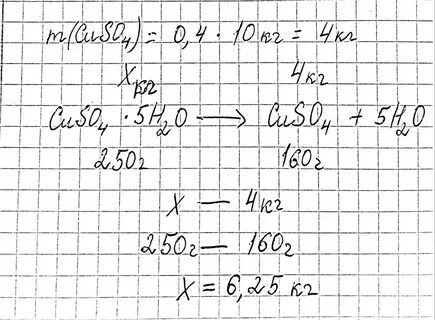 m(CuSO₄) = 0,4 · 10кг = 4кг
Xкг 4кг
CuSO₄ · 5H₂O → CuSO₄ + 5H₂O
250г 160г
X — 4кг
250г — 160г
X = 6,25 кг